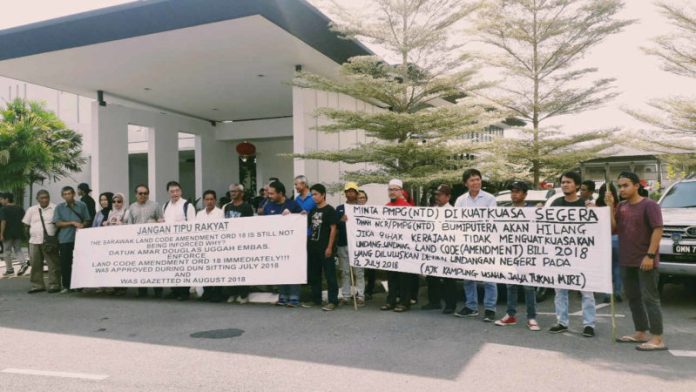 JANGAN TIPU RAKYAT
THE SARAWAK LAND CODE AMENDMENT ORD 18 IS STILL NOT
BEING ENFORCED WHY?
DATUK AMAR DOUGLAS UGGAH EMBAS.
ENFORCE
LAND CODE AMENDMENT ORD 18 IMMEDIATELY!!!
WAS APPROVED DURING DUN SITTING JULY 2018
AND
WAS GAZETTED IN AUGUST 2018
MINTA PMPG(NTD) DI KUATKUASA SEGERA
TANAH NCR/PMPG(NTD) BUMIPUTERA AKAN HILANG
JIKA PIHAK KERAJAAN TIDAK MENGUATKUASAKAN
UNDANG-UNDANG LAND CODE (AMENDMENT) BILL 2018
YANG DILULUSKAN DEWAN UNDANGAN NEGERI PADA
12 JULY 2018 (AJK KAMPUNG USAHA JAYA TUKAU MIRI)